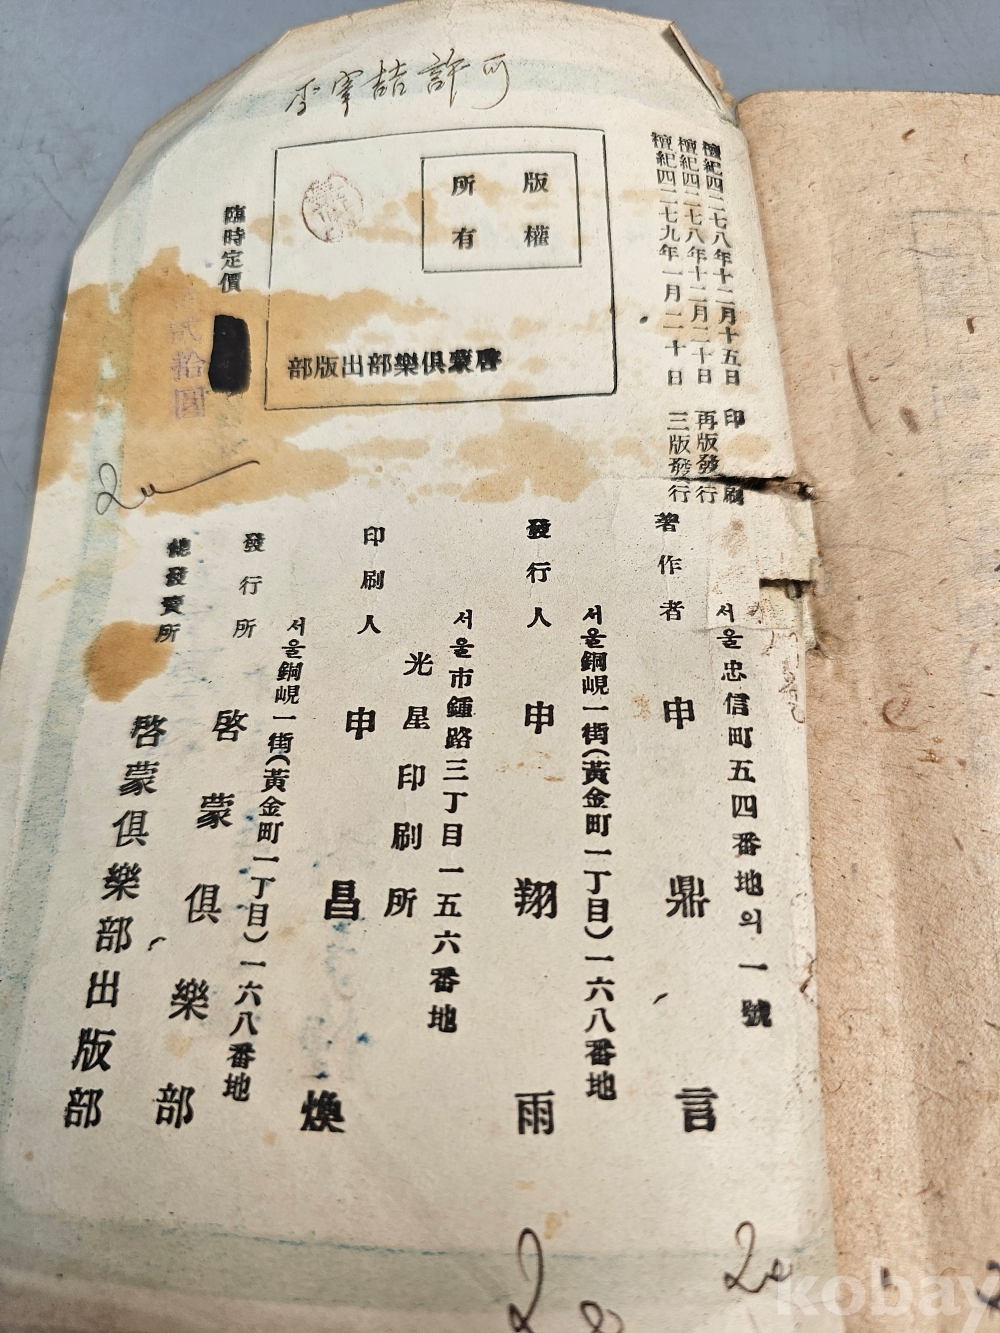 檀紀四二七八年十二月十五日 印刷
檀紀四二七八年十二月二十日 再版發行
檀紀四二七九年一月二十日 三版發行
版權
所有
啓蒙俱樂部出版部
臨時定價
拾圓
서울忠信町五四番地의一號
著作者 申鼎言
서울銅峴一街(黃金町一丁目)一六八番地
發行人 申翔雨
서울市鍾路三丁目一五六番地
光星印刷所
印刷人 申昌煥
서울銅峴一街(黃金町一丁目)一六八番地
發行所 啓蒙俱樂部
總發賣所 啓蒙俱樂部出版部
kobay